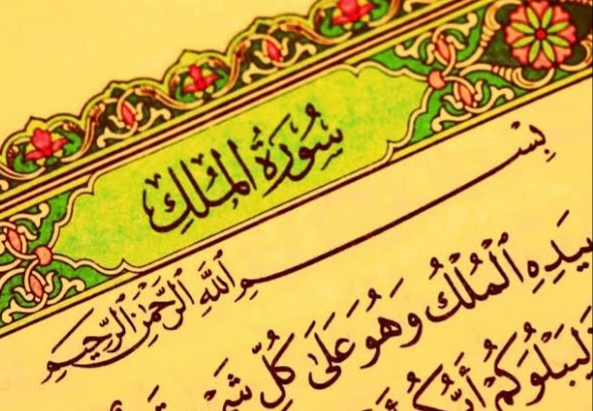 سُورَةُ المُلْكِ
بِسْمِ ٱللَّهِ ٱلرَّحْمَٰنِ ٱلرَّحِيمِ
بِيَدِهِ ٱلْمُلْكُ وَهُوَ عَلَىٰ كُلِّ
لِيَبْلُوَكُمْ